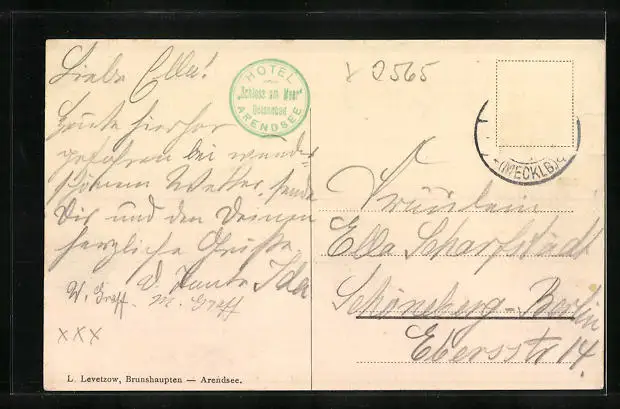 Liebe Ella!
Heute hierher
gefahren bei wunder-
schönem Wetter, sende
Dir und den Deinen
herzliche Grüße
D. Tante Ida
W. Greff. M. Greff
xxx
L. Levetzow, Brunshaupten — Arendsee.
HOTEL
„Schloss am Meer“
Ostseebad
ARENDSEE
x 2565
(MECKLB)
Fräulein
Ella Scharfstädt
Schöneberg-Berlin
Ebersstr 14.